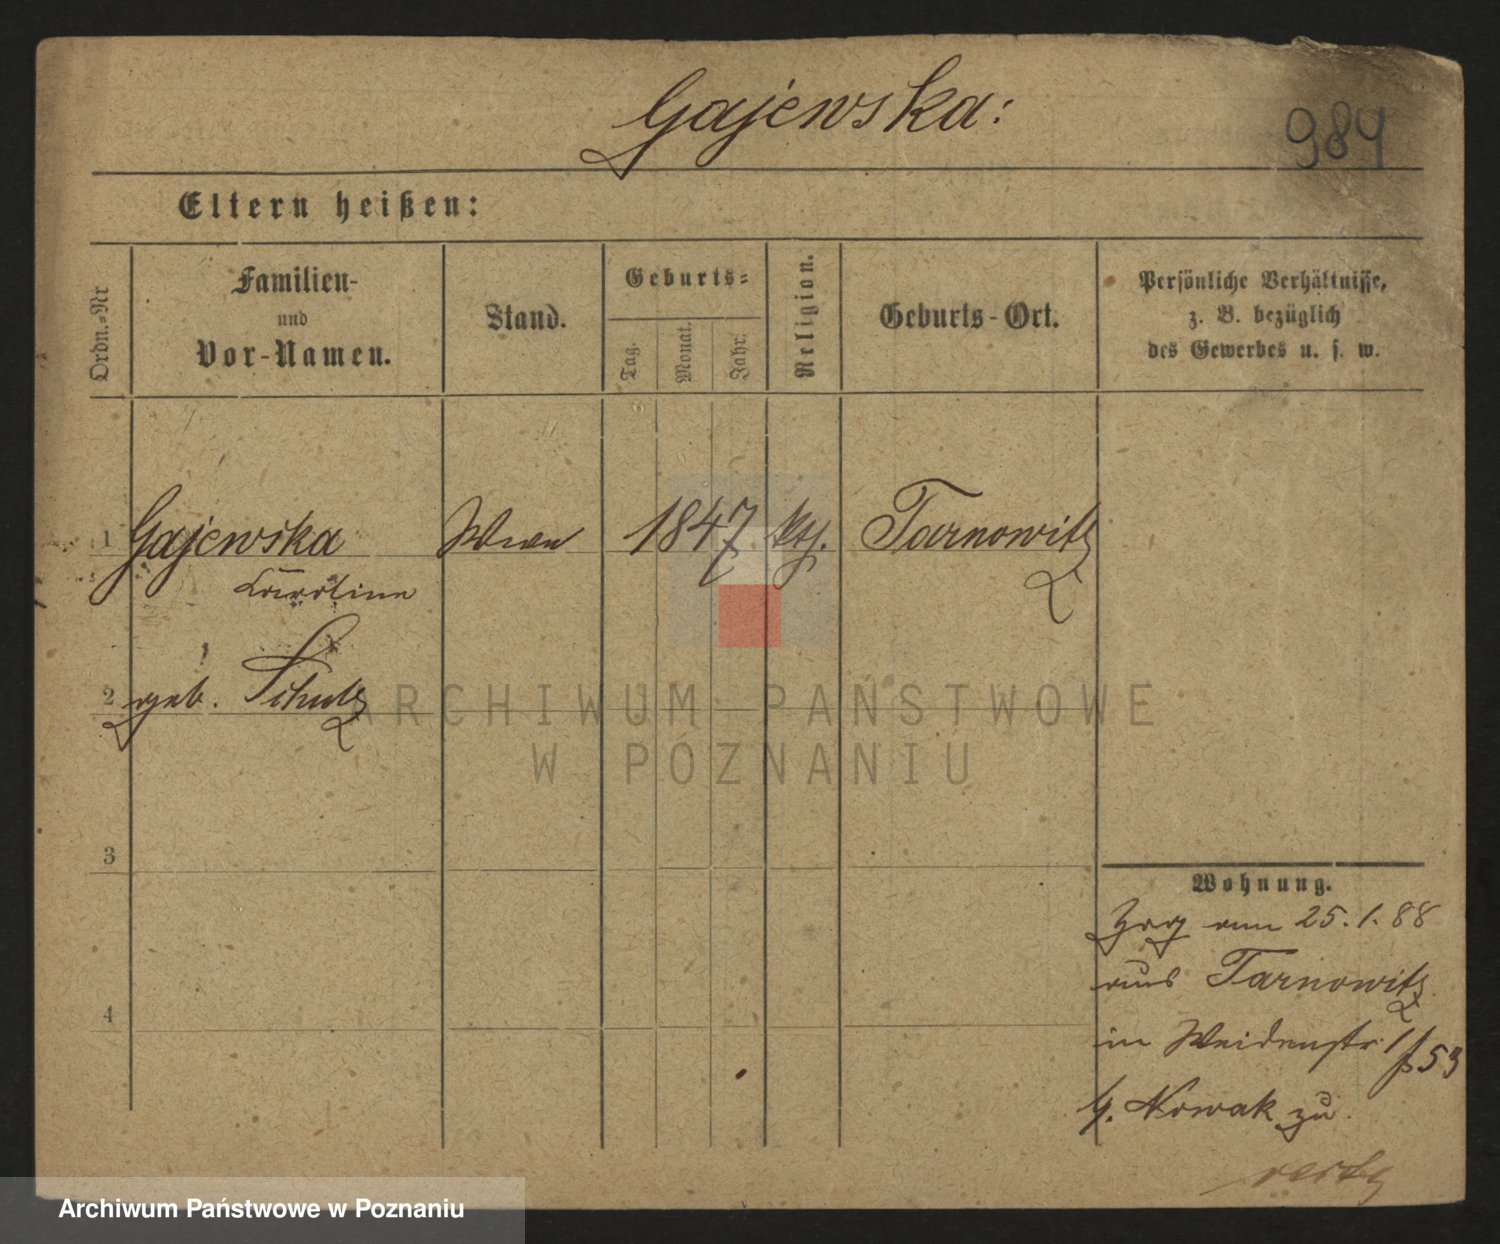 Gajewska:
984
Eltern heißen:
Ordn.-Nr
Familien-
und
Vor-Namen.
Stand.
Geburts-
Tag.
Monat.
Jahr.
Religion.
Geburts-Ort.
Persönliche Verhältnisse,
z. B. bezüglich
des Gewerbes u. s. w.
1 Gajewska Wwe 1847 kth. Tarnowitz
Caroline
2 geb. Schulz
ARCHIWUM PAŃSTWOWE
W POZNANIU
3
Wohnung.
Zzg am 25.1.88
aus Tarnowitz
4
in Weidenstr 1/53
Nowak zu
Archiwum Państwowe w Poznaniu